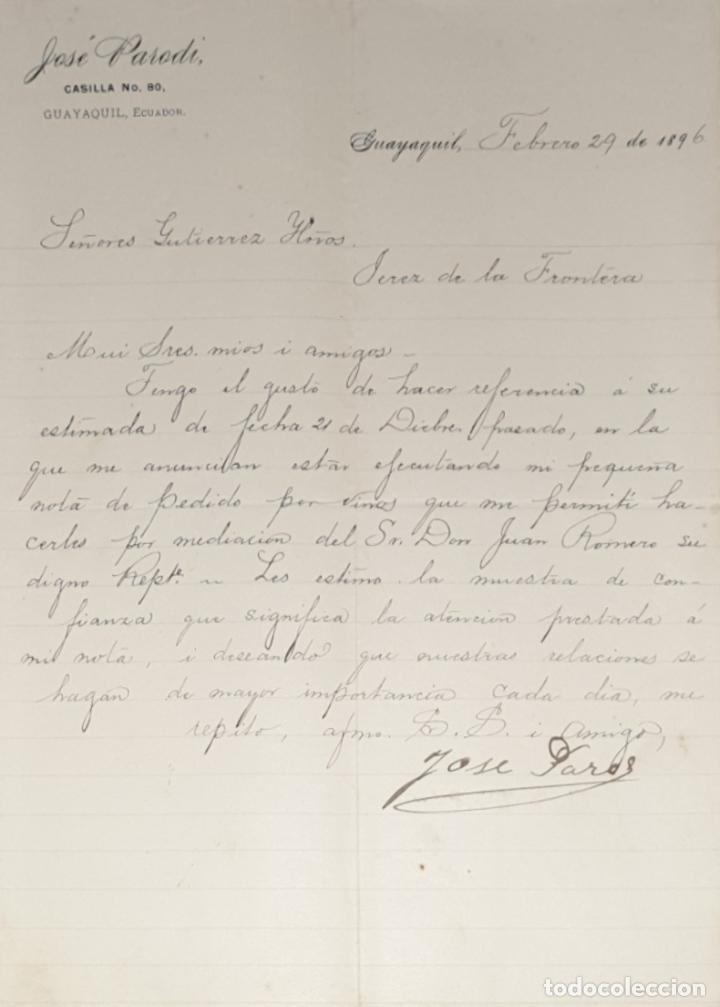 José Parodi,
CASILLA No. 80,
GUAYAQUIL, ECUADOR.
Guayaquil, Febrero 29 de 1896
Señores Gutierrez Hños.
Jerez de la Frontera
Mui Sres. mios i amigos_
Tengo el gusto de hacer referencia á su
estimada de fecha 21 de Dicbre. pasado, en la
que me anuncian estar ejecutando mi pequeña
nota de pedido por vinos que me permití ha-
cerles por mediacion del Sr. Don Juan Romero su
digno Repte. Les estimo la muestra de con-
fianza que significa la atencion prestada á
mi nota, i deseando que nuestras relaciones se
hagan de mayor importancia cada dia, me
repito, afmo. S. S. i amigo,
Jose Parodi
todocoleccion